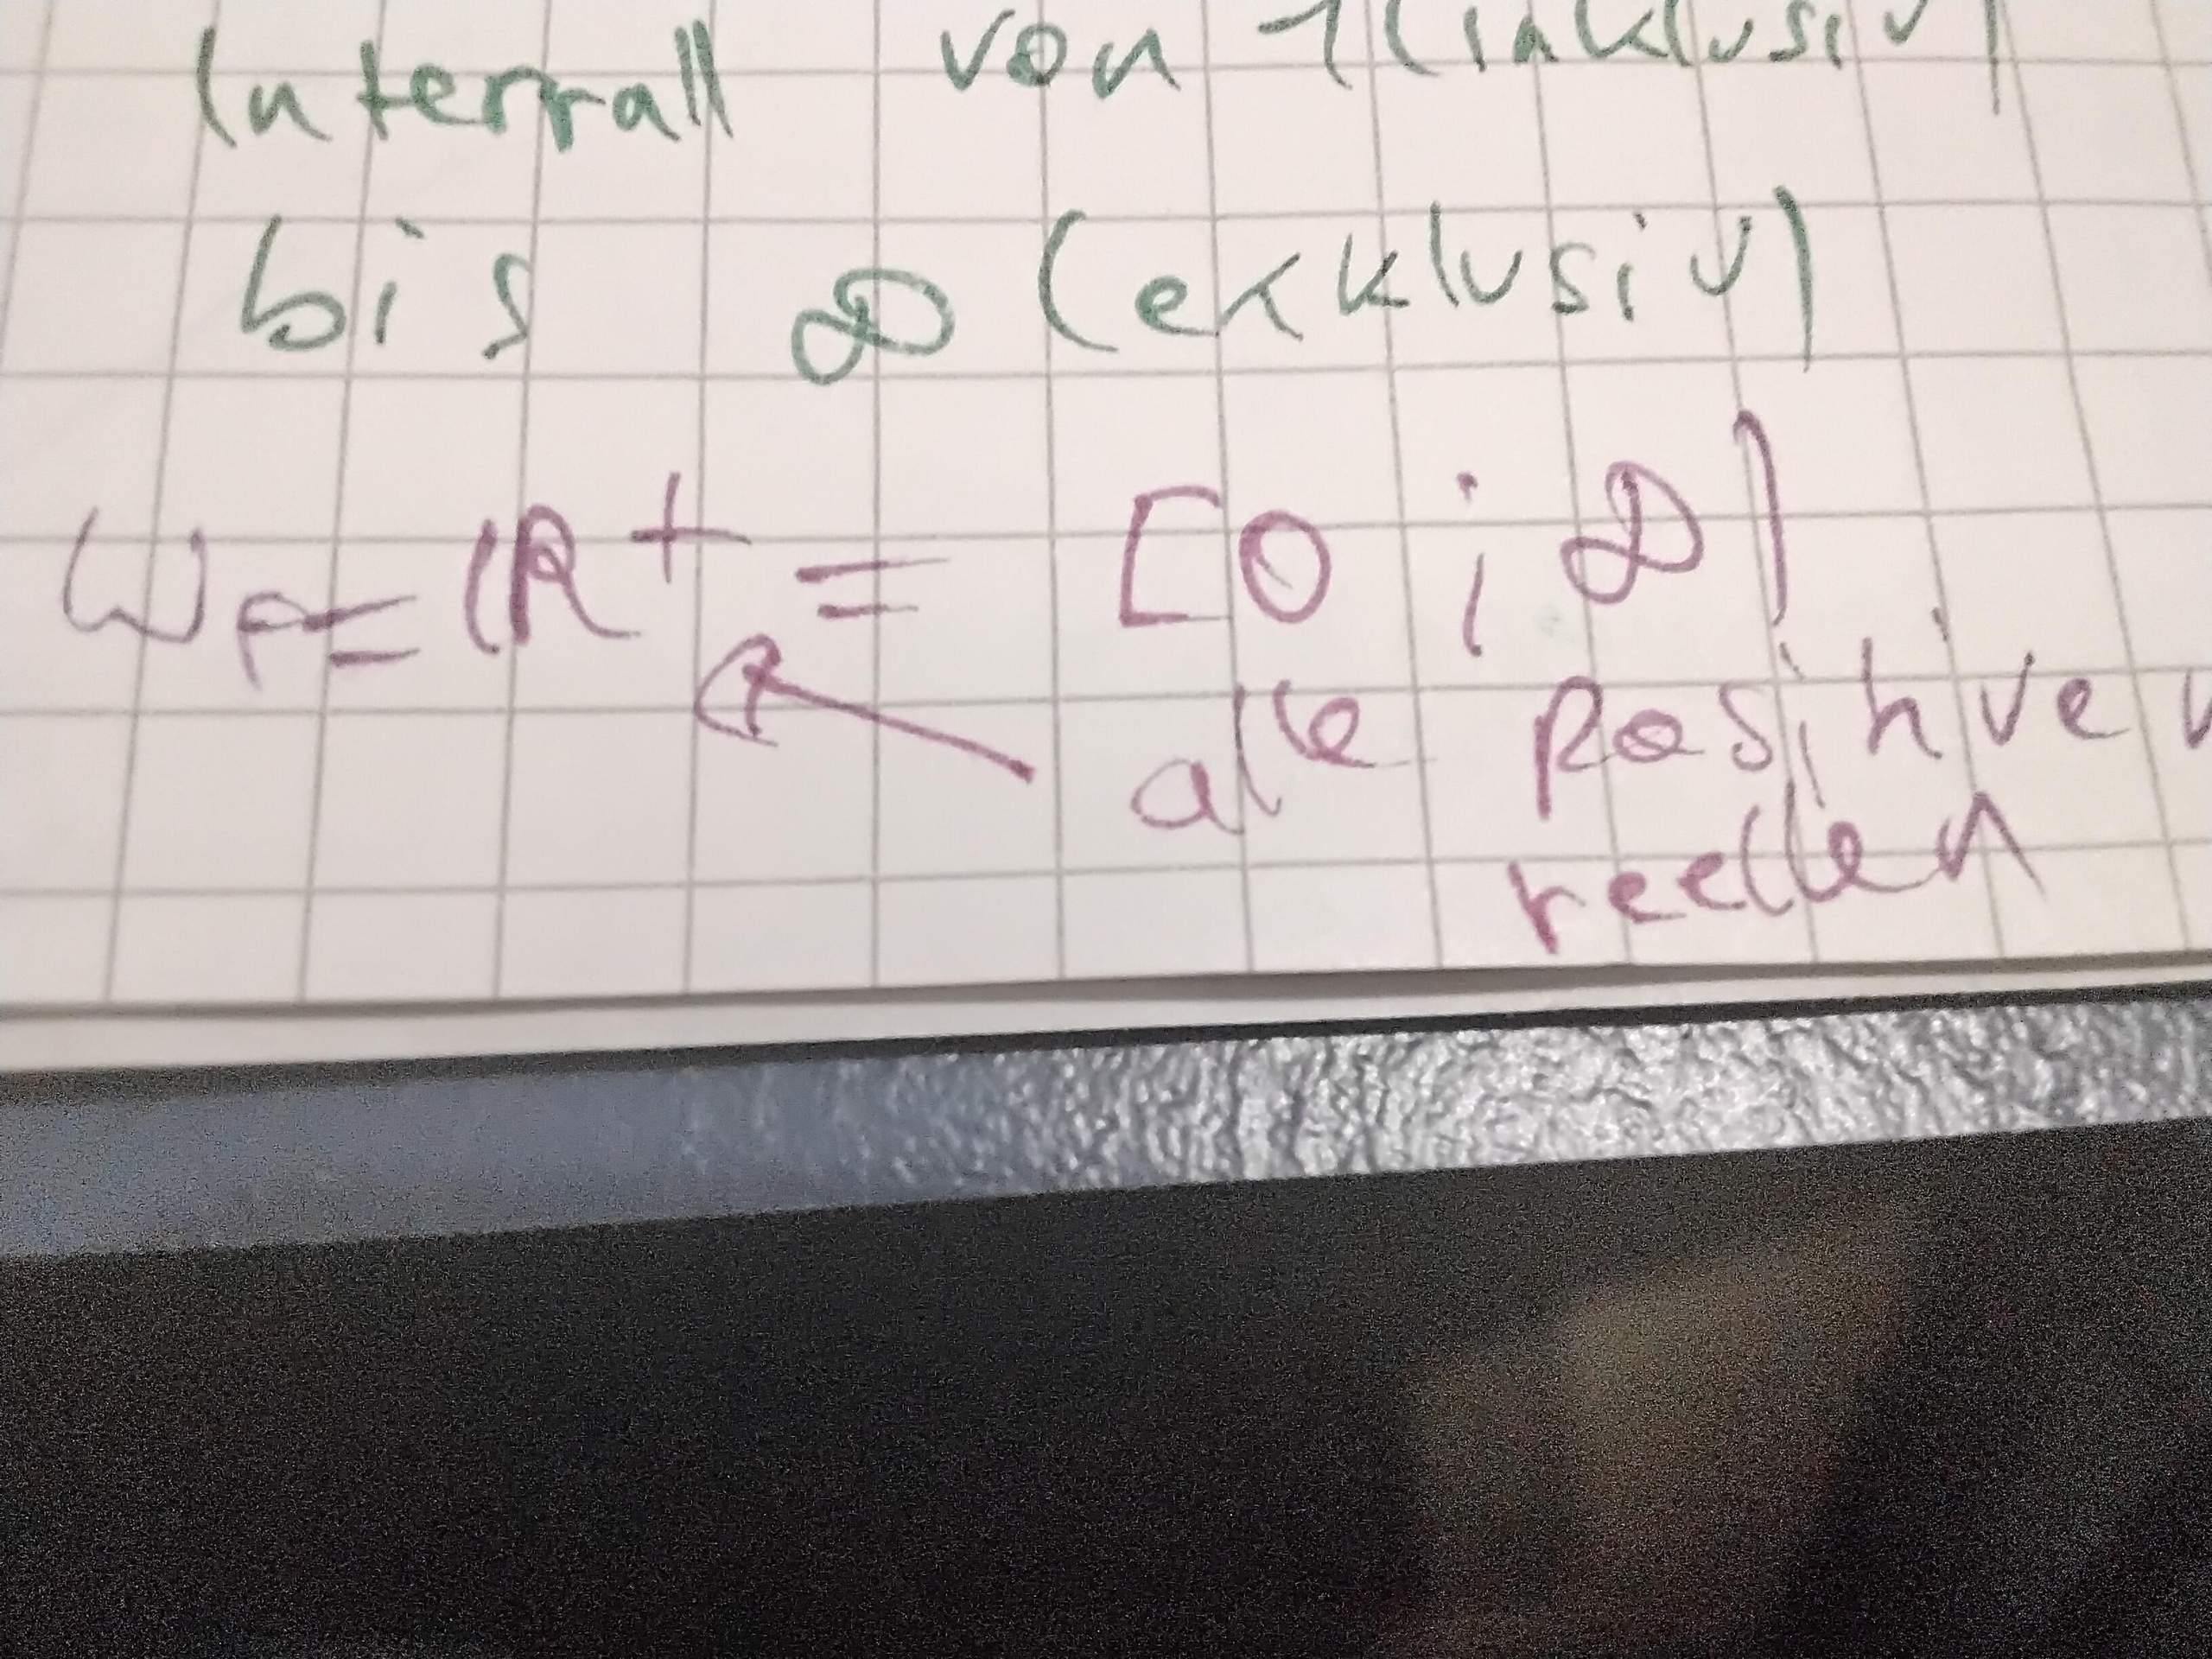 Intervall von 1 (inklusiv)
bis ∞ (exklusiv)
W_f = ℝ⁺ = [0 ; ∞)
alle positive
reellen